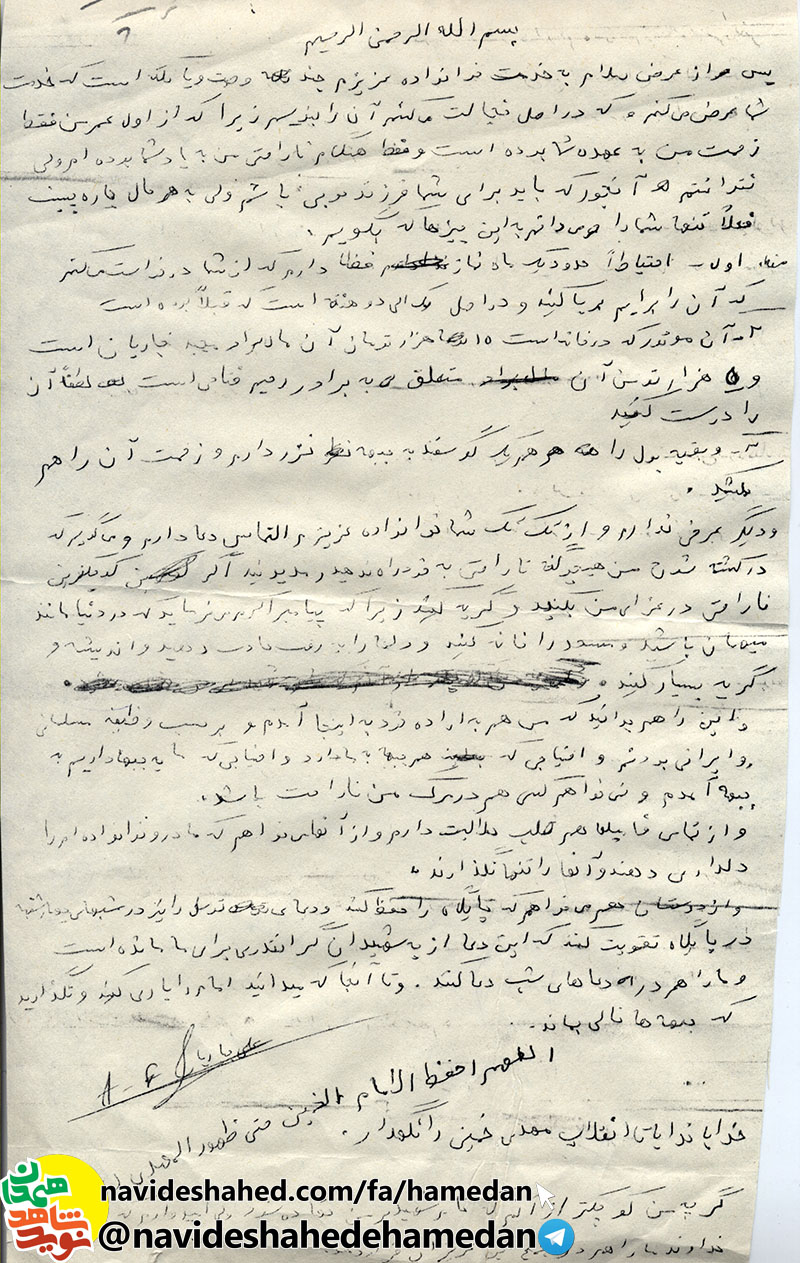 بسم الله الرحمن الرحیم
پس از عرض سلام به خدمت خانواده عزیزم چند وصیت و یا بلکه است که خدمت
شما عرض می‌کنم و که در اصل خجالت می‌کشم آن را بنویسم زیرا که از اول عمر من فقط
زحمت من به عهده شما بوده است و فقط هنگام ناراحتی من به یاد شما بوده ام ولی
نتوانستم آنجور که باید برای شما فرزند خوبی باشم ولی به هر حال چاره چیست
فعلاً تنها شما را می‌دانم به این چیزها که بگویم.
اول - احتیاطاً حدود یک ماه نماز قضا دارم که از شما درخواست می‌کنم
که آن را برایم برپا کنید و در اصل یک الی دو هفته است که قبلاً بوده است
۲- آن موتور که در خانه است ۱۵ هزار تومان آن مال برادر خاریان است
و ۵ هزار تومن آن متعلق به برادر رحیم فتاحی است لطفاً آن
را درست کنید
۳- و بقیه پول را هم یک گوسفند به جبهه نذر دارم و زحمت آن را هم
بکشید.
و دیگر عرضی ندارم و از تک تک شما خانواده عزیزم التماس دعا دارم و می‌گویم که
در کشته شدن من هیچگونه ناراحتی به خود راه ندهید و بدانید اگر کوچکترین
ناراحتی در عزای من بکنید و گریه کنید زیرا که پیامبر اکرم می‌فرماید که در دنیا مانند
میهمان باشید و مسجد را خانه کنید و دلها را به رقت عادت دهید و اندیشه و
گریه بسیار کنید.
و این را هم بدانید که من هم به اراده خود به اینجا آمدم و بر حسب وظیفه مسلمانی
و ایرانی بودنم و احتیاجی که جبهه‌ها به ما دارد و احتیاجی که ما به جبهه‌ها داریم به
جبهه آمدم و نمی‌خواهم کسی هم در مرگ من ناراحت باشد.
و از تمامی فامیلها هم طلب حلالیت دارم و از آنها می‌خواهم که مادر و خانواده ام را
دلداری دهند و آنها را تنها نگذارند.
و از دوستان هم می‌خواهم که پایگاه را حفظ کنند و دعای توسل را نیز در شبهای چهارشنبه
در پایگاه تقویت کنند که این دعا از شهیدان گرانقدری برای ما مانده است
و ما را هم در دعاهای شب دعا کنند. و تا آنجا که میدانید امام را یاری کنید و نگذارید
که جبهه ها خالی بماند.
اللهم احفظ الامام الخمینی حتی ظهور المهدی
خدایا خدایا تا انقلاب مهدی خمینی را نگهدار.
گریه من کوچکتر از آنم که
خداوند ما را هم
navideshahed.com/fa/hamedan
@navideshahedehamedan
نوید شاهد همدان